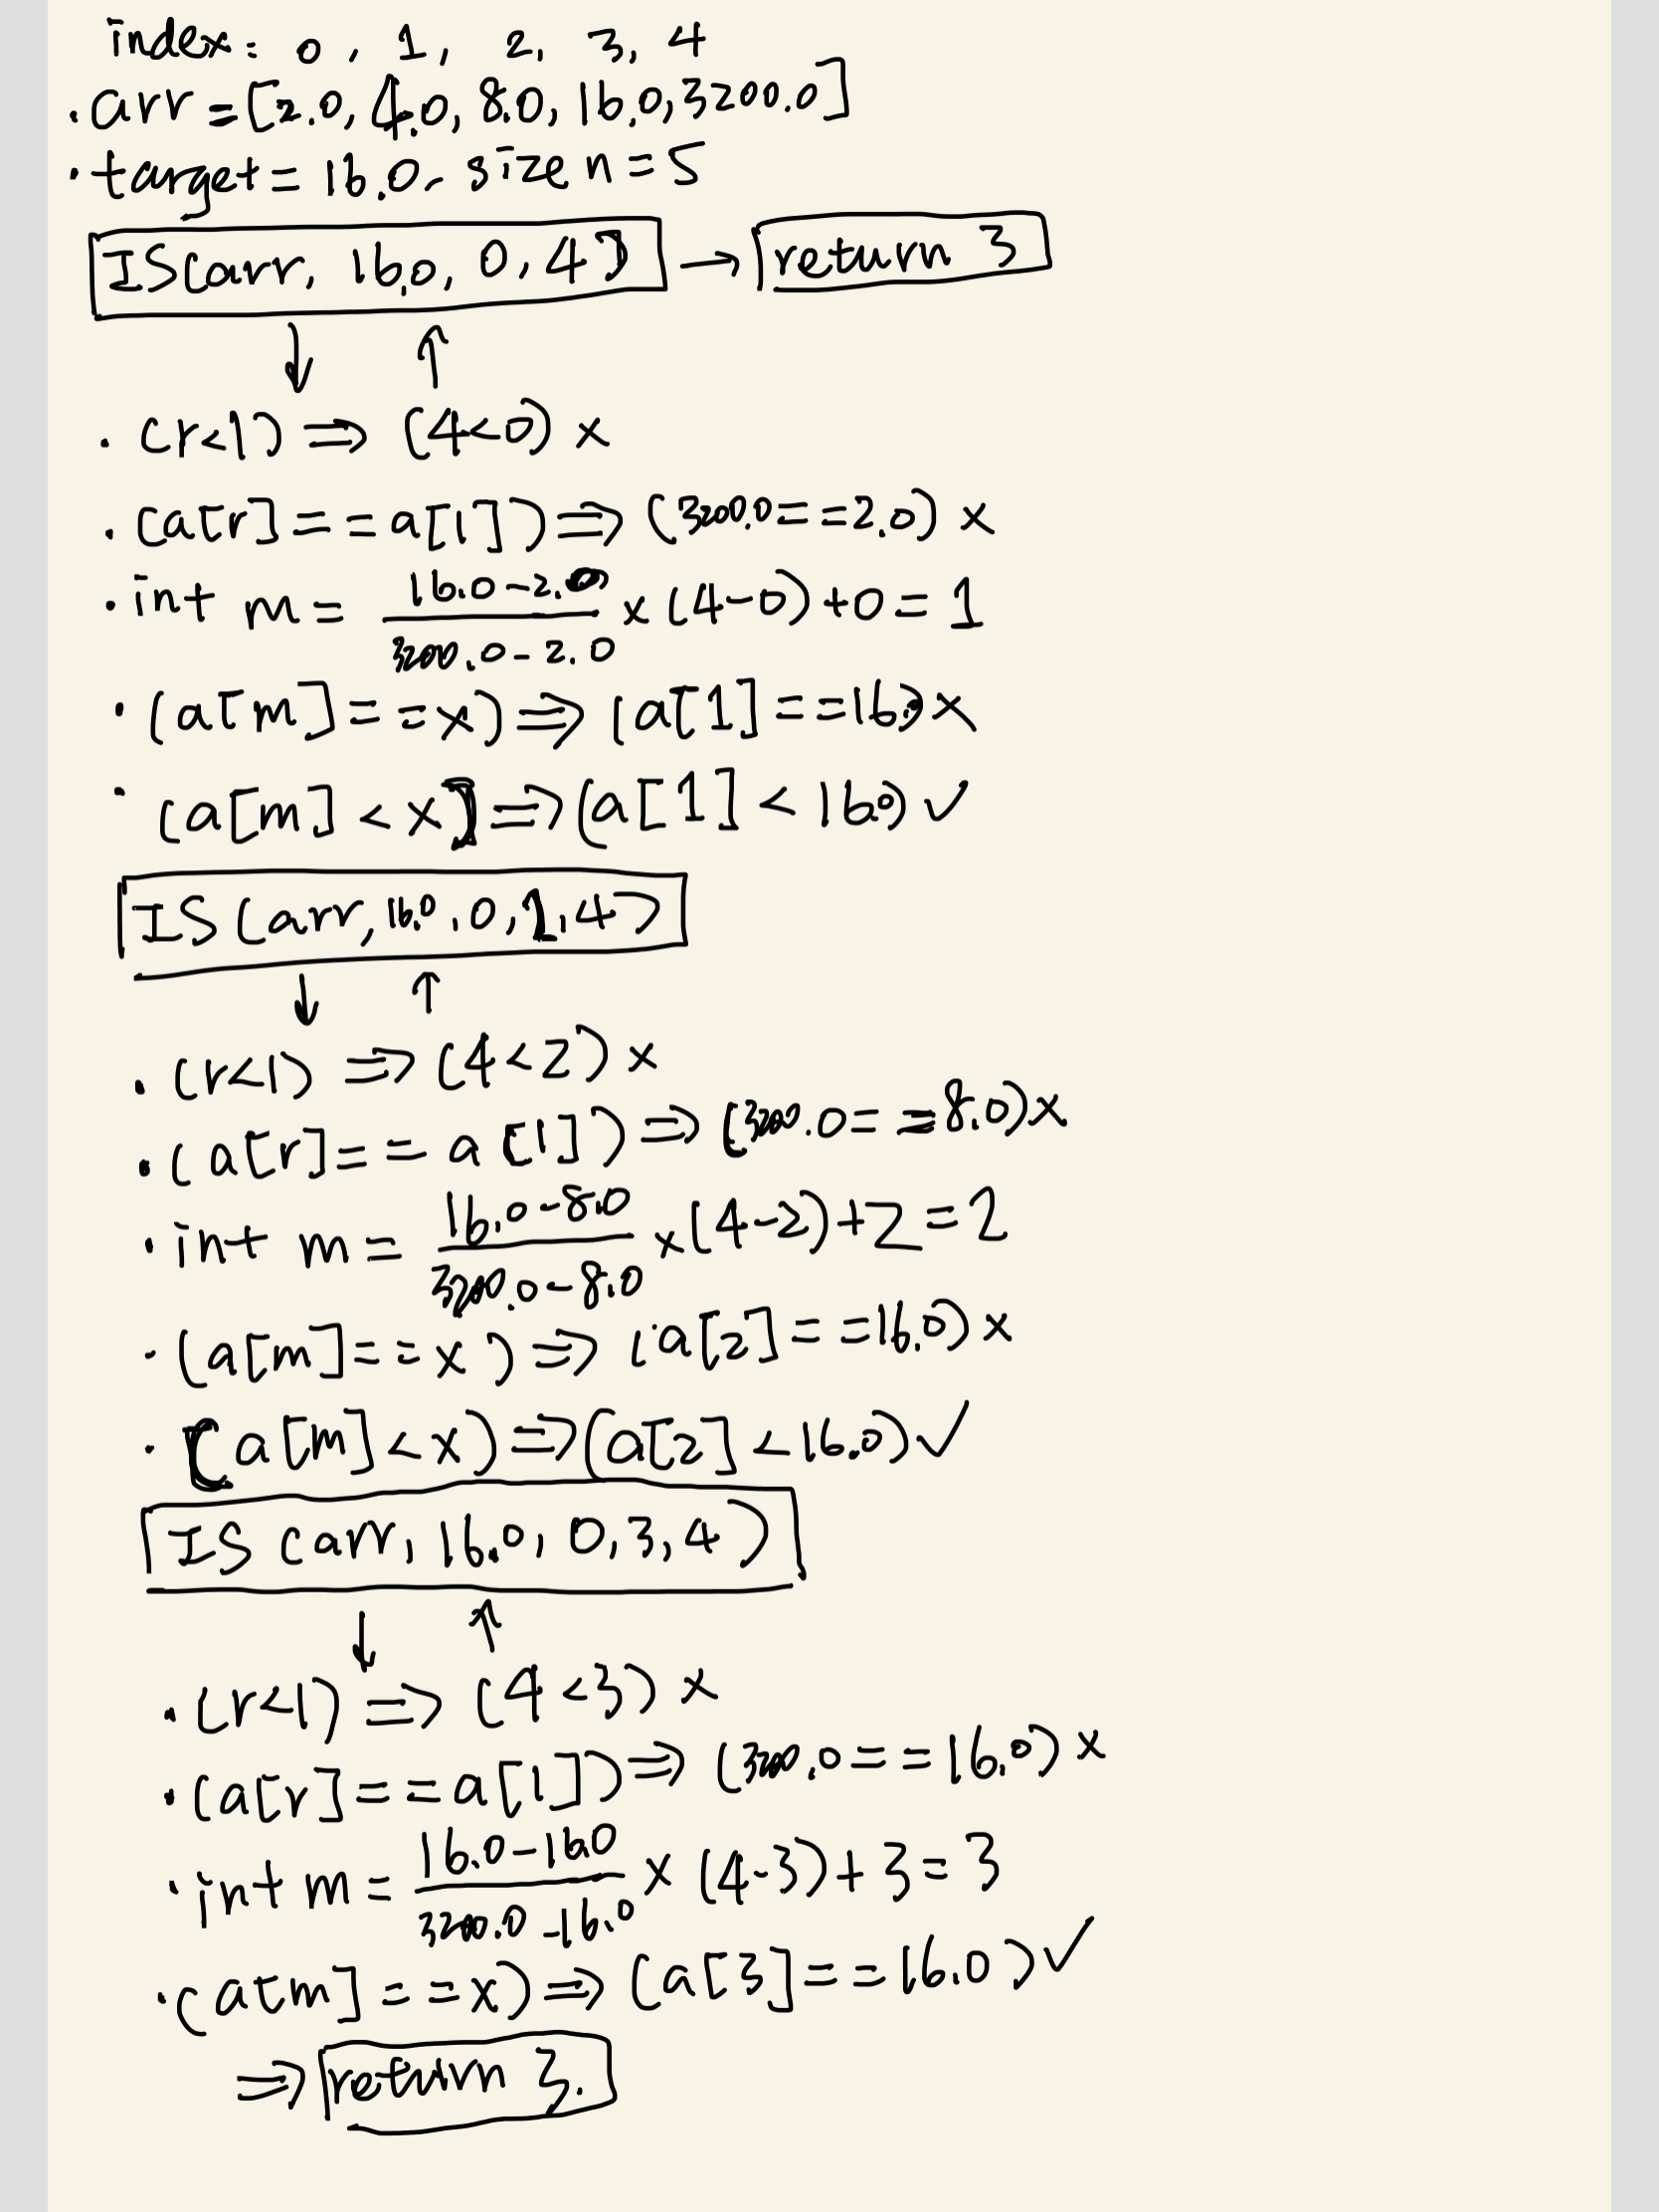 index: 0, 1, 2, 3, 4
• arr = [2.0, 4.0, 8.0, 16.0, 3200.0]
• target = 16.0, size n = 5
IS(arr, 16.0, 0, 4) → return 3
↓ ↑
• (r<l) ⇒ (4<0) x
• (a[r] == a[l]) ⇒ (3200.0 == 2.0) x
• int m = (16.0-2.0)/(3200.0-2.0) x (4-0) + 0 = 1
• (a[m] == x) ⇒ (a[1] == 16.0) x
• (a[m] < x) ⇒ (a[1] < 16.0) ✓
IS(arr, 16.0, 0, 2, 4)
↓ ↑
• (r<l) ⇒ (4<2) x
• (a[r] == a[l]) ⇒ (3200.0 == 8.0) x
• int m = (16.0-8.0)/(3200.0-8.0) x (4-2) + 2 = 2
• (a[m] == x) ⇒ (a[2] == 16.0) x
• (a[m] < x) ⇒ (a[2] < 16.0) ✓
IS(arr, 16.0, 0, 3, 4)
↓ ↑
• (r<l) ⇒ (4<3) x
• (a[r] == a[l]) ⇒ (3200.0 == 16.0) x
• int m = (16.0-16.0)/(3200.0-16.0) x (4-3) + 3 = 3
• (a[m] == x) ⇒ (a[3] == 16.0) ✓
⇒ return 3.